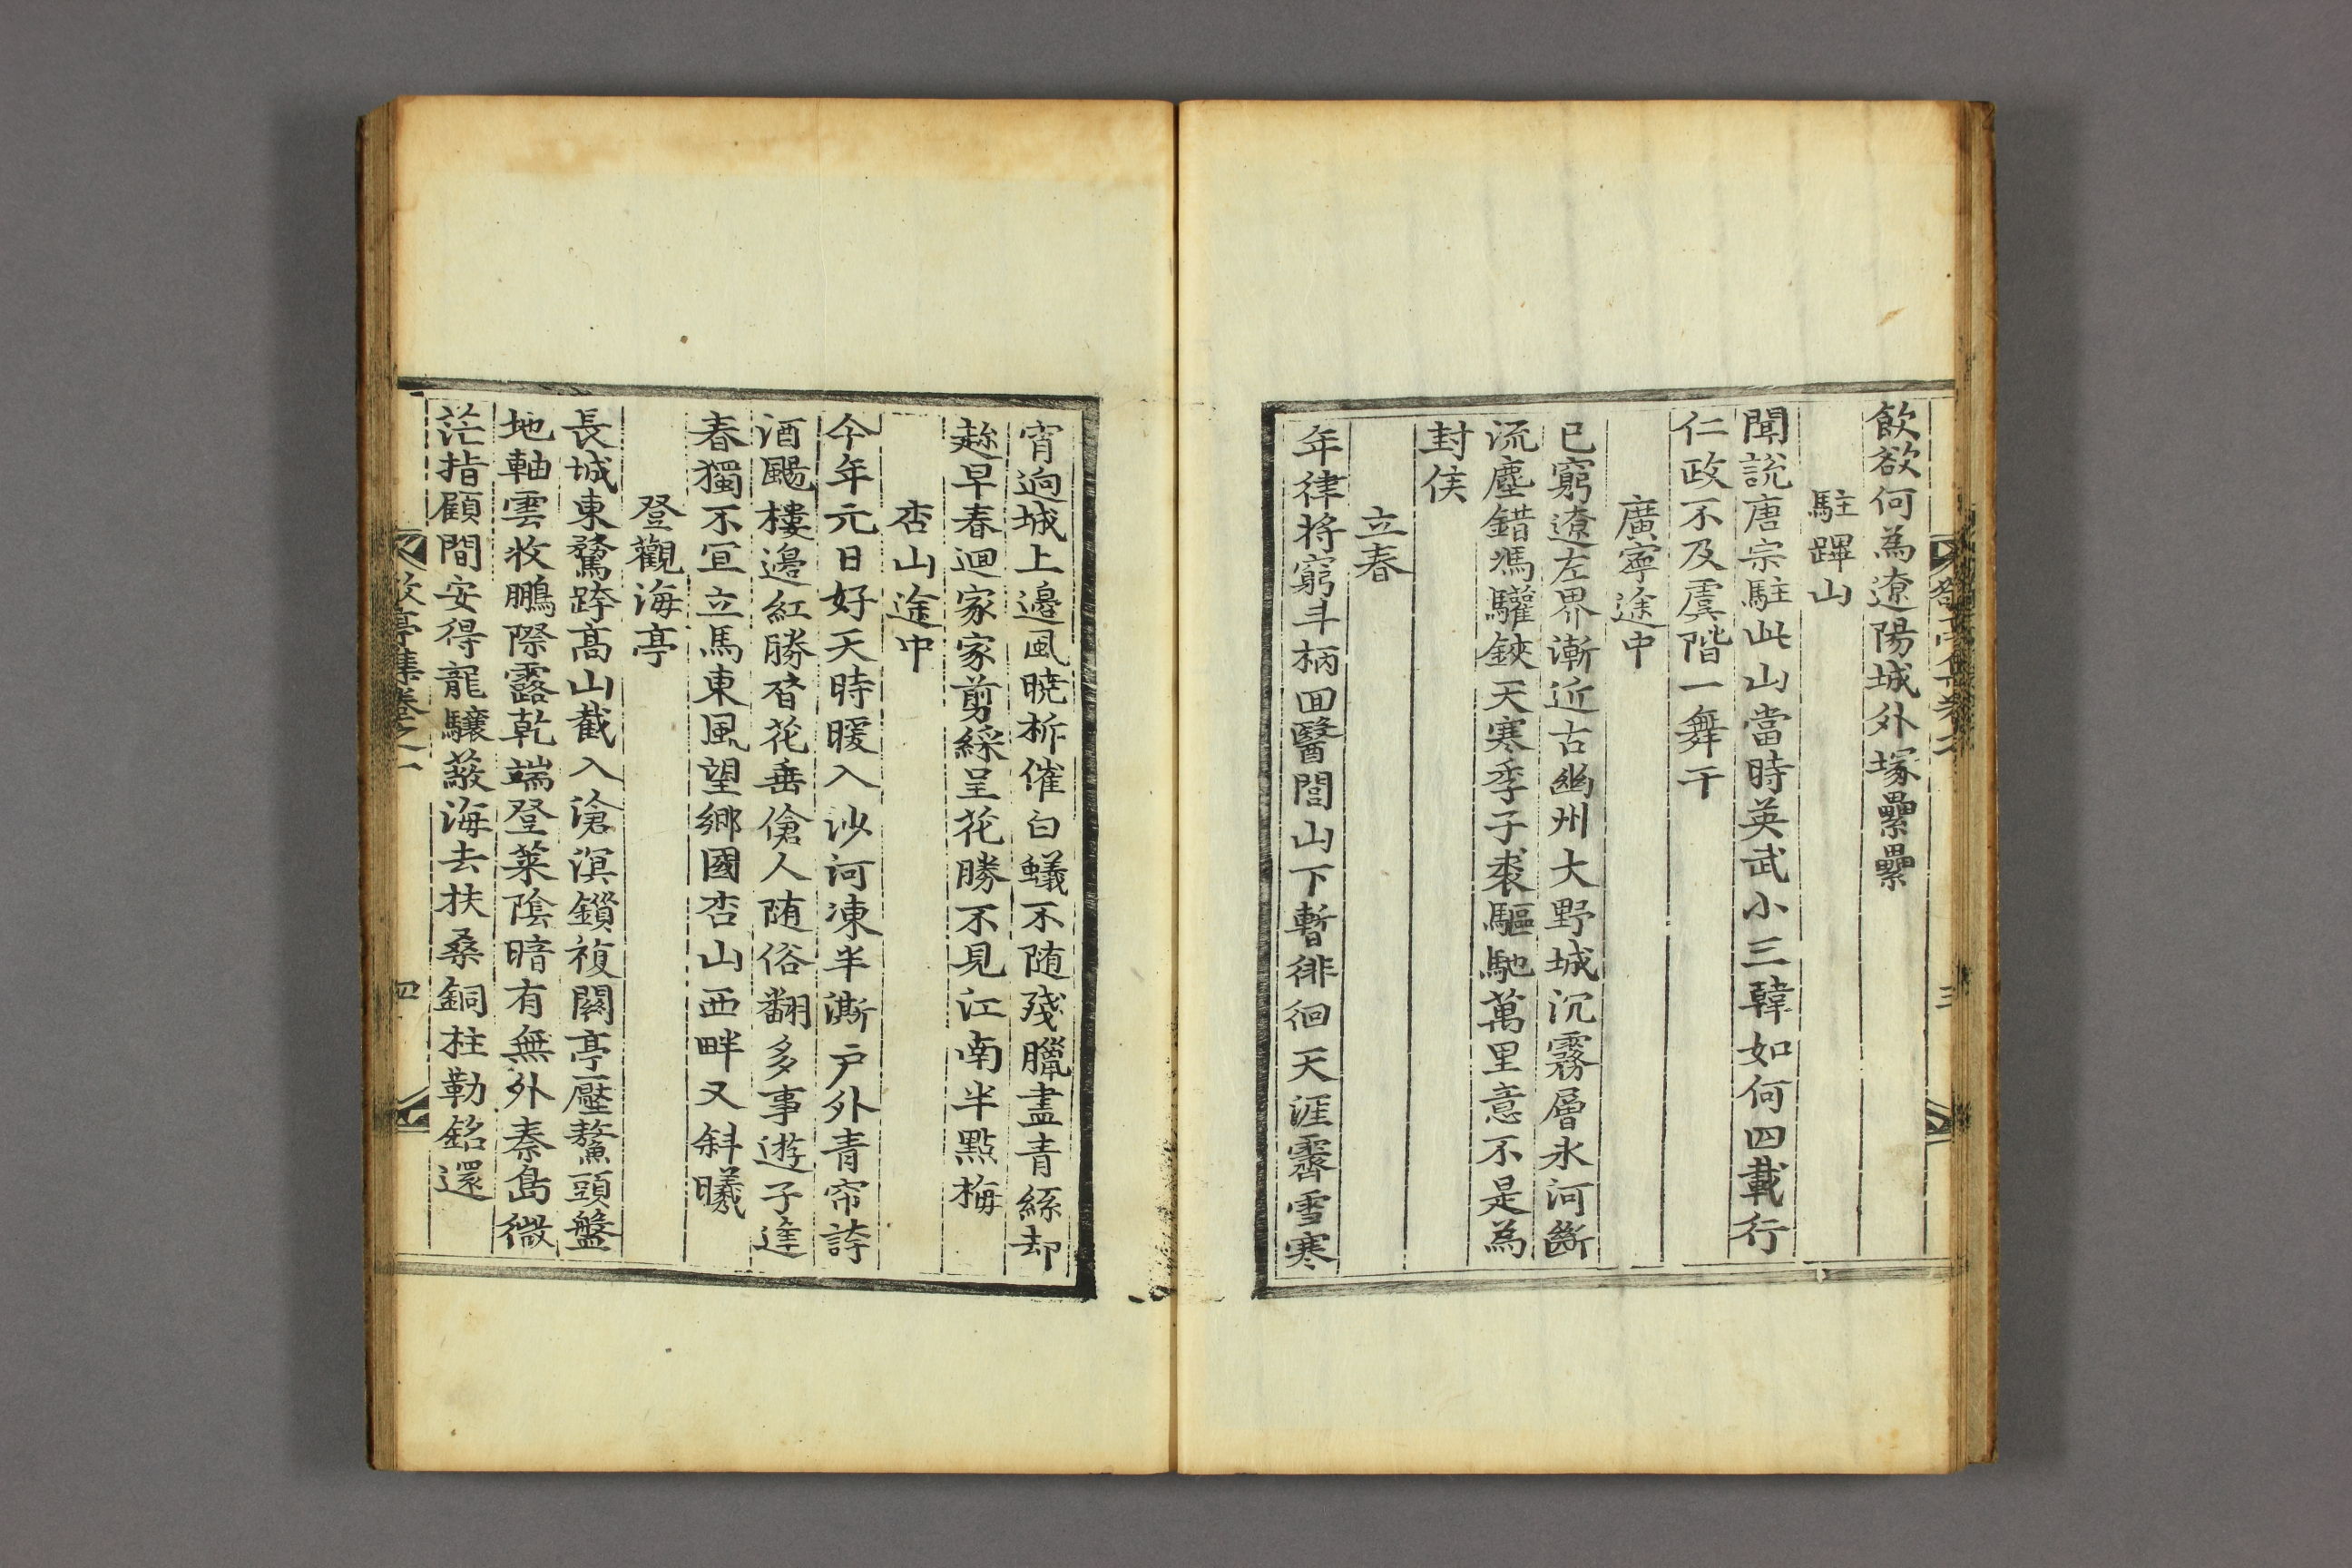 飲欲何為遼陽城外塚纍纍
駐蹕山
聞說唐宗駐此山當時英武小三韓如何四載行
仁政不及虞階一舞干
廣寧途中
已窮遼左界漸近古幽州大野城沉霧層氷河斷
流塵錯馮驩鋏天寒季子裘驅馳萬里意不是為
封侯
立春
年律将窮斗柄回醫閭山下暫徘徊天涯霽雪寒
三
宵逈城上邊風曉柝催白蟻不随殘臘盡青絲却
趂早春迴家家剪綵呈花勝不見江南半點梅
杏山途中
今年元日好天時暖入沙河凍半澌戶外青帘誇
酒颺樓邊紅勝㫺花垂傖人随俗翻多事遊子逢
春獨不宜立馬東風望鄉國杏山西畔又斜曦
登觀海亭
長城東騖跨高山截入滄溟鎖複關亭壓鰲頭盤
地軸雲收鵬際露乾端登萊陰暗有無外秦島微
茫指顧間安得龍驤蔽海去扶桑銅柱勒銘還
亭集卷之二
四